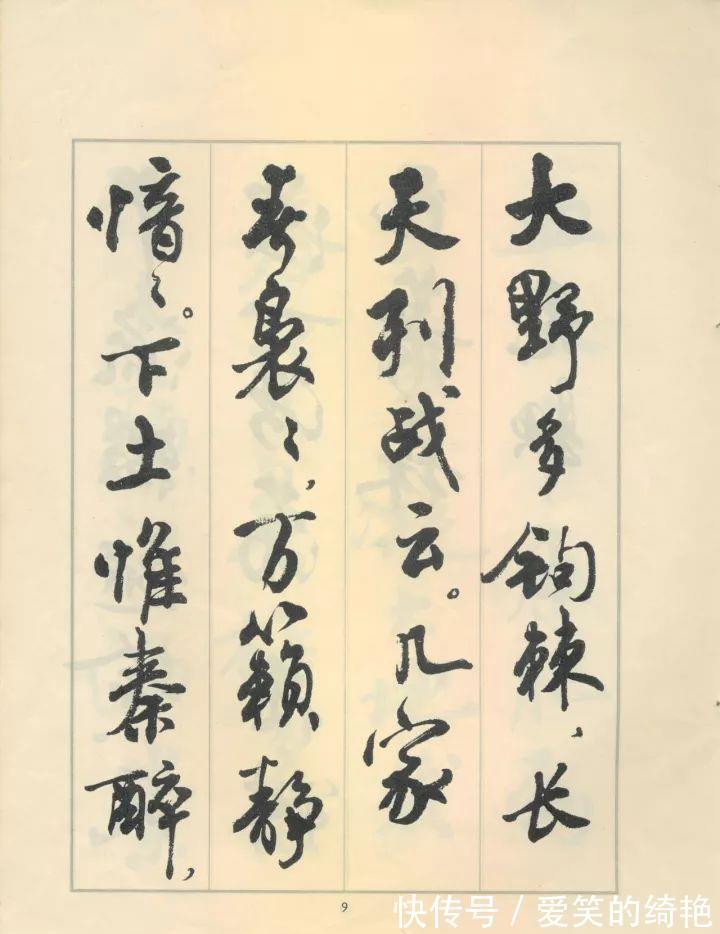 大野多钩棘、长
天列战云。几家
春袅〻，万籁静
愔〻。下土惟秦醉，
9
快传号 / 爱笑的绮艳